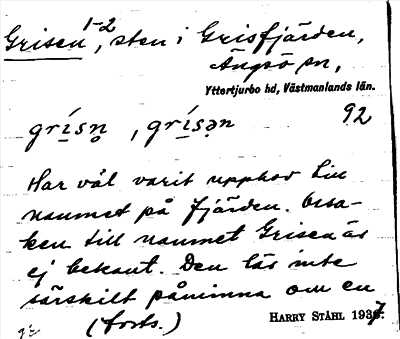 Grisen 1-2, sten i Grisfjärden,
Ängsö sn,
Yttertjurbo hd, Västmanlands län.
92
grísn̥, grísən
Har väl varit upphov till
namnet på fjärden. Orsa-
ken till namnet Grisen är
ej bekant. Den lär inte
särskilt påminna om en
(forts.)
HARRY STÅHL 1937.